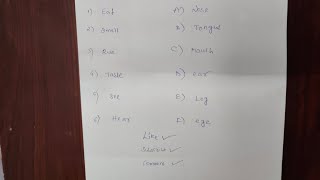 1) Eat A) Nose
2) Smell B) Tongue
3) Run C) Mouth
4) Taste D) ear
5) See E) Leg
6) Hear F) eye
Like ✓